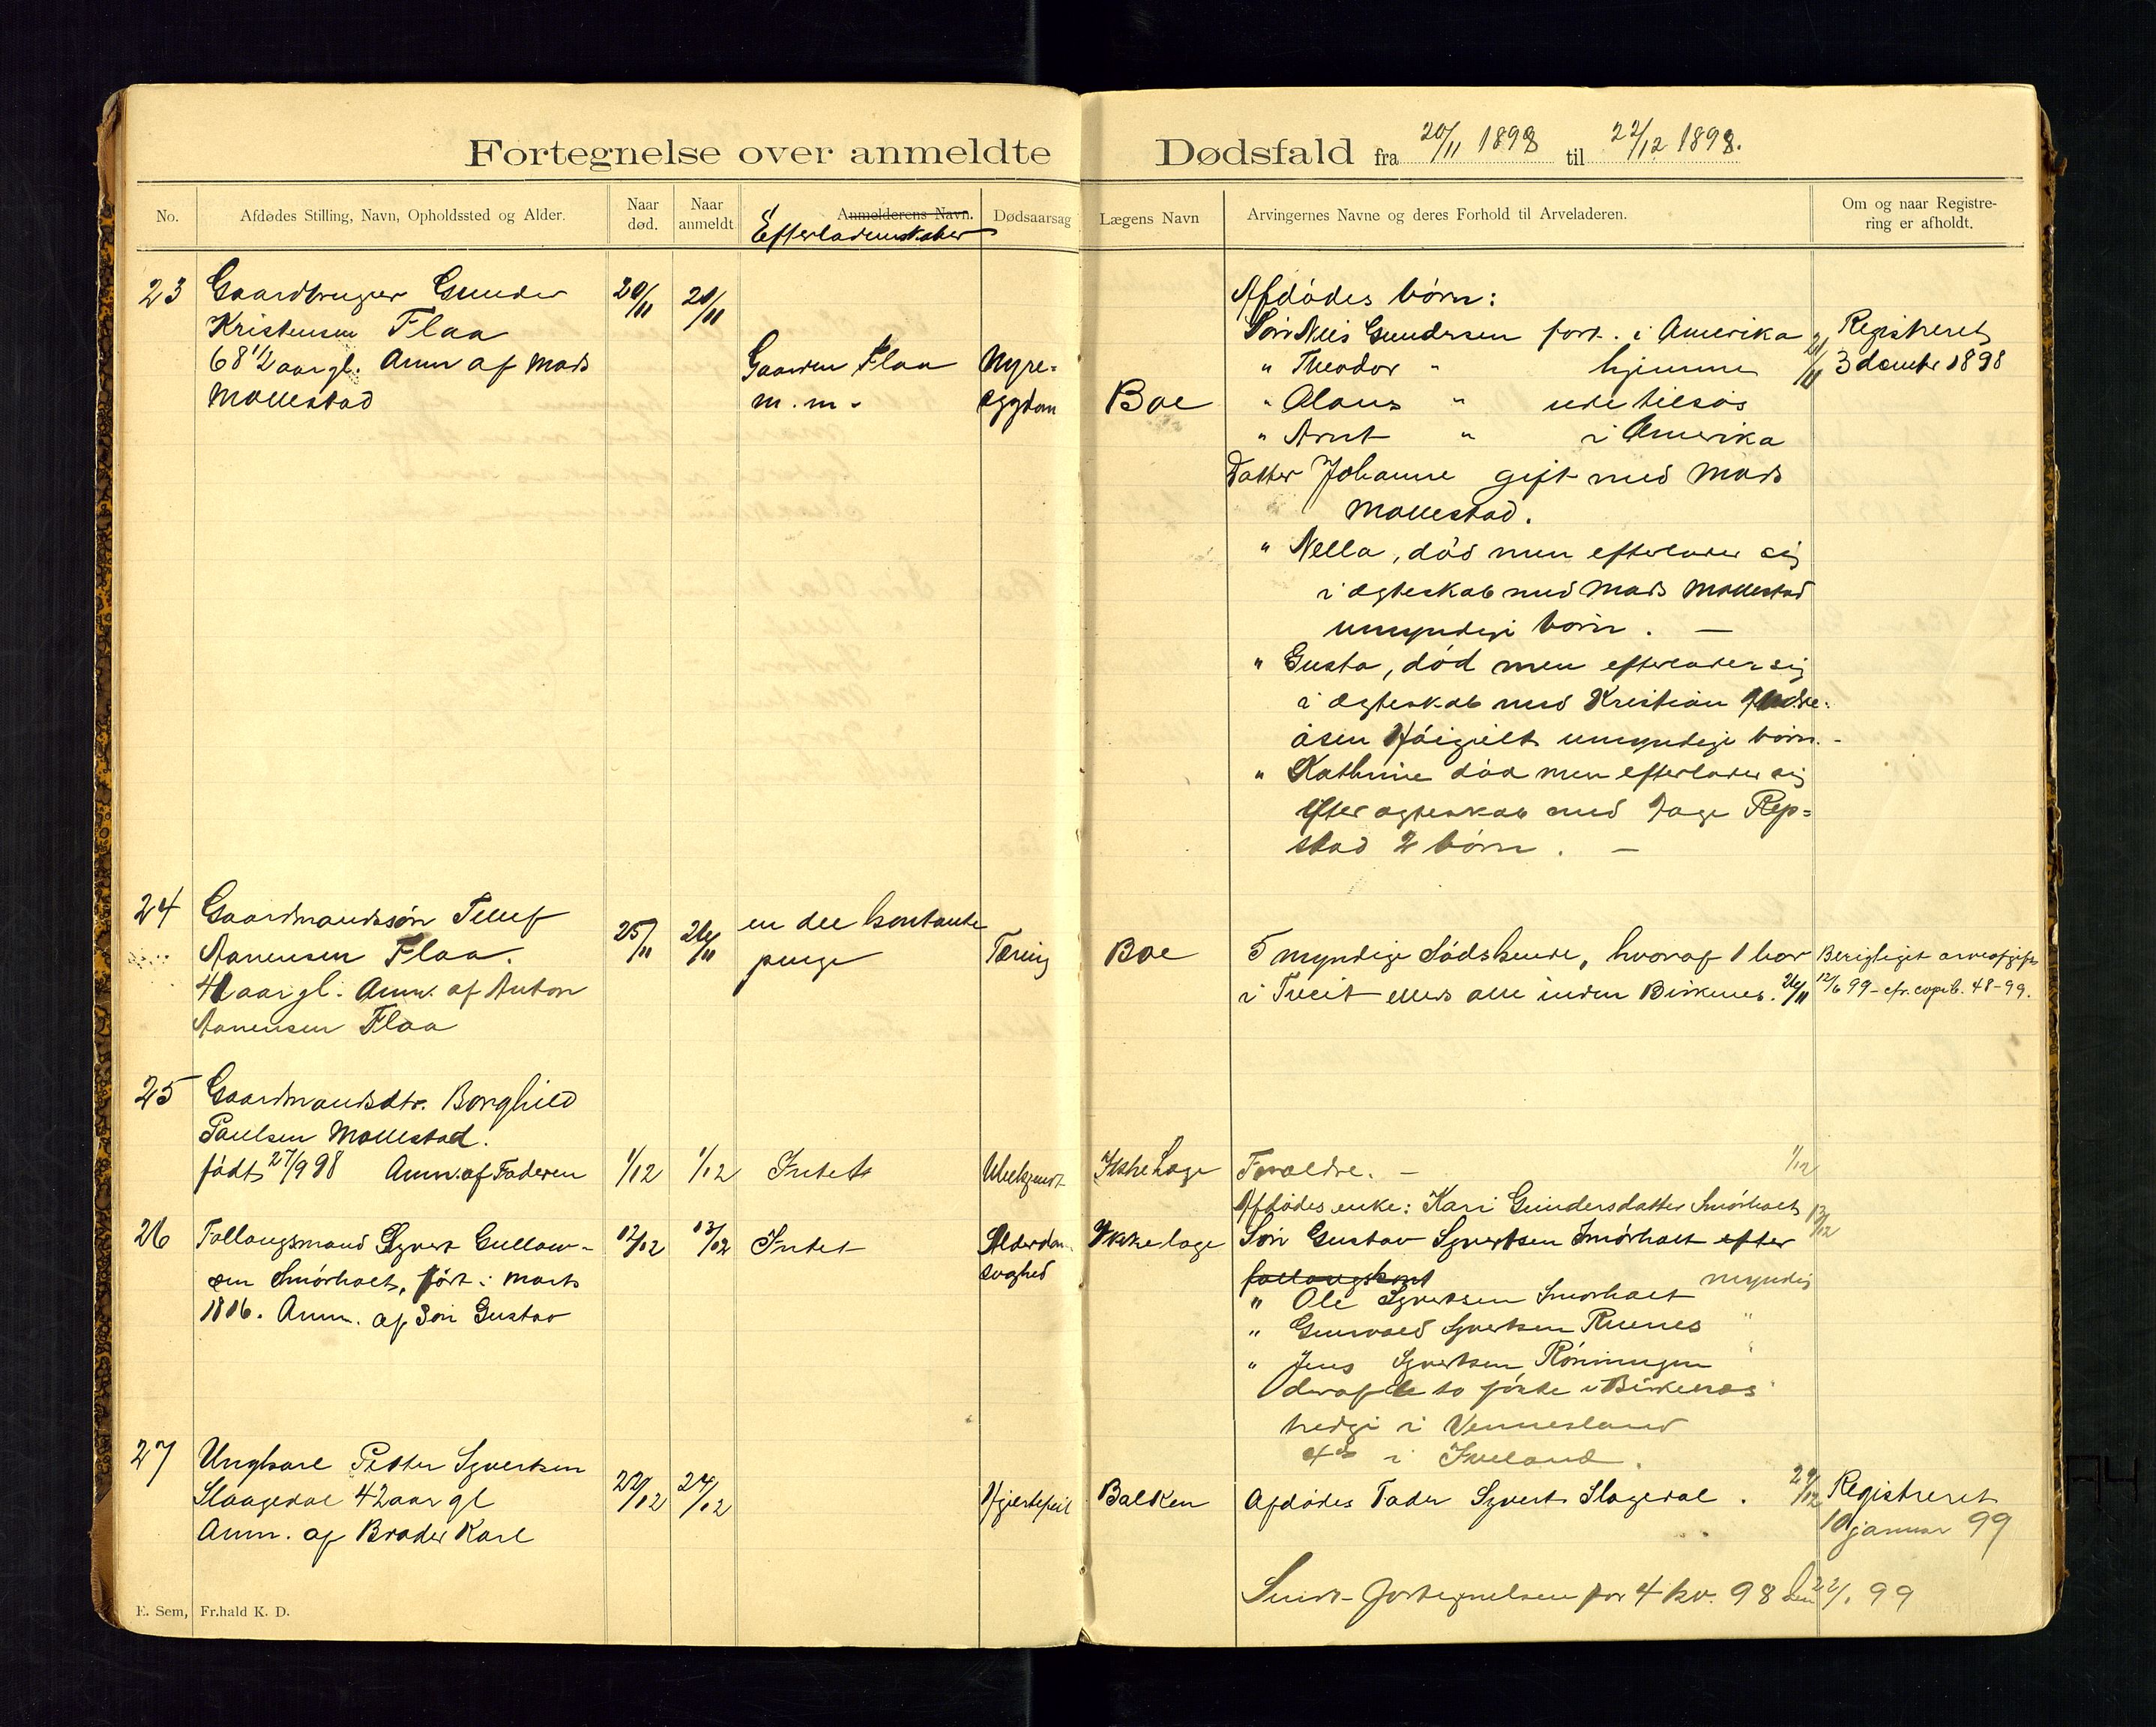 Fortegnelse over anmeldte Dødsfald fra 20/11 1898 til 22/12 1898.
No. Afdødes Stilling, Navn, Opholdssted og Alder. Naar død. Naar anmeldt Anmelderens Navn. Efterladenskaber Dødsaarsag Lægens Navn Arvingernes Navne og deres Forhold til Arveladeren. Om og naar Registrering er afholdt.
23 Gaardbruger Gunder
Kristensen Flaa
68 1/2 aar gl. Anm af Mads
Mollestad
20/11 20/11
Gaarden Flaa
m. m.
Nyre=
sygdom
Boe
Afdødes børn:
Søn Nils Gundersen fort. i Amerika
" Theodor " hjemme 20/11
" Olaus " ude tilsøs
" Arnt " i Amerika
Datter Johanne gift med Mads
Mollestad.
" Nella, død men efterlader sig
i ægteskab med Mads Mollestad
umyndige børn. —
" Gusta, død men efterlader sig
i ægteskab med Kristian
umyndige børn. -
" Kathrine død men efterlader sig
efter ægteskab med Tage Rep=
stad 2 børn. —
Registreret
3 decembr 1898
24 Gaardmandssøn Tellef
Aanensen Flaa.
41 aar gl. Anm. af Anton
Aanensen Flaa
25/11 26/11
en del kontante
penge
Tæring
Boe
5 myndige Sødskende, hvoraf 1 bor
i Tveit ellers alle inden Birkenes. 26/11
Berigtiget arveafgift
12/6 99 - cfr. copib. 48-99.
25 Gaardmandsdtr. Borghild
Paulsen Mollestad.
født 27/9 98 Anm. af Faderen
1/12 1/12 Intet
Ubekjendt
Ikke Læge
Forældre. — 1/12
26 Follaugsmand Syvert Gullow-
sen Smørholt, født i Marts
1816. Anm. af Søn Gustav
12/12 13/12 Intet
Alderdom
svaghed
Ikke læge
Afdødes enke: Kari Gundersdatter Smørholt 13/12
Søn Gustav Syvertsen Smørholt efter
follaugskont myndig
" Ole Syvertsen Smørholt
" Gunvald Syvertsen Ruenes "
" Jens Syvertsen Rønningen "
deraf de to første i Birkenæs
tredje i Vennesland
4de i Iveland.
27 Ungkarl Petter Syvertsen
Slaagedal 42 aar gl
Anm. af Broder Karl
22/12 24/12
Hjertefeil
Balken
Afdødes Fader Syvert Slagedal. 24/12
Registreret
10 januar 99
Sendt Fortegnelsen for 4 kv. 98 den 22/1 99
E. Sem, Fr.hald K. D.